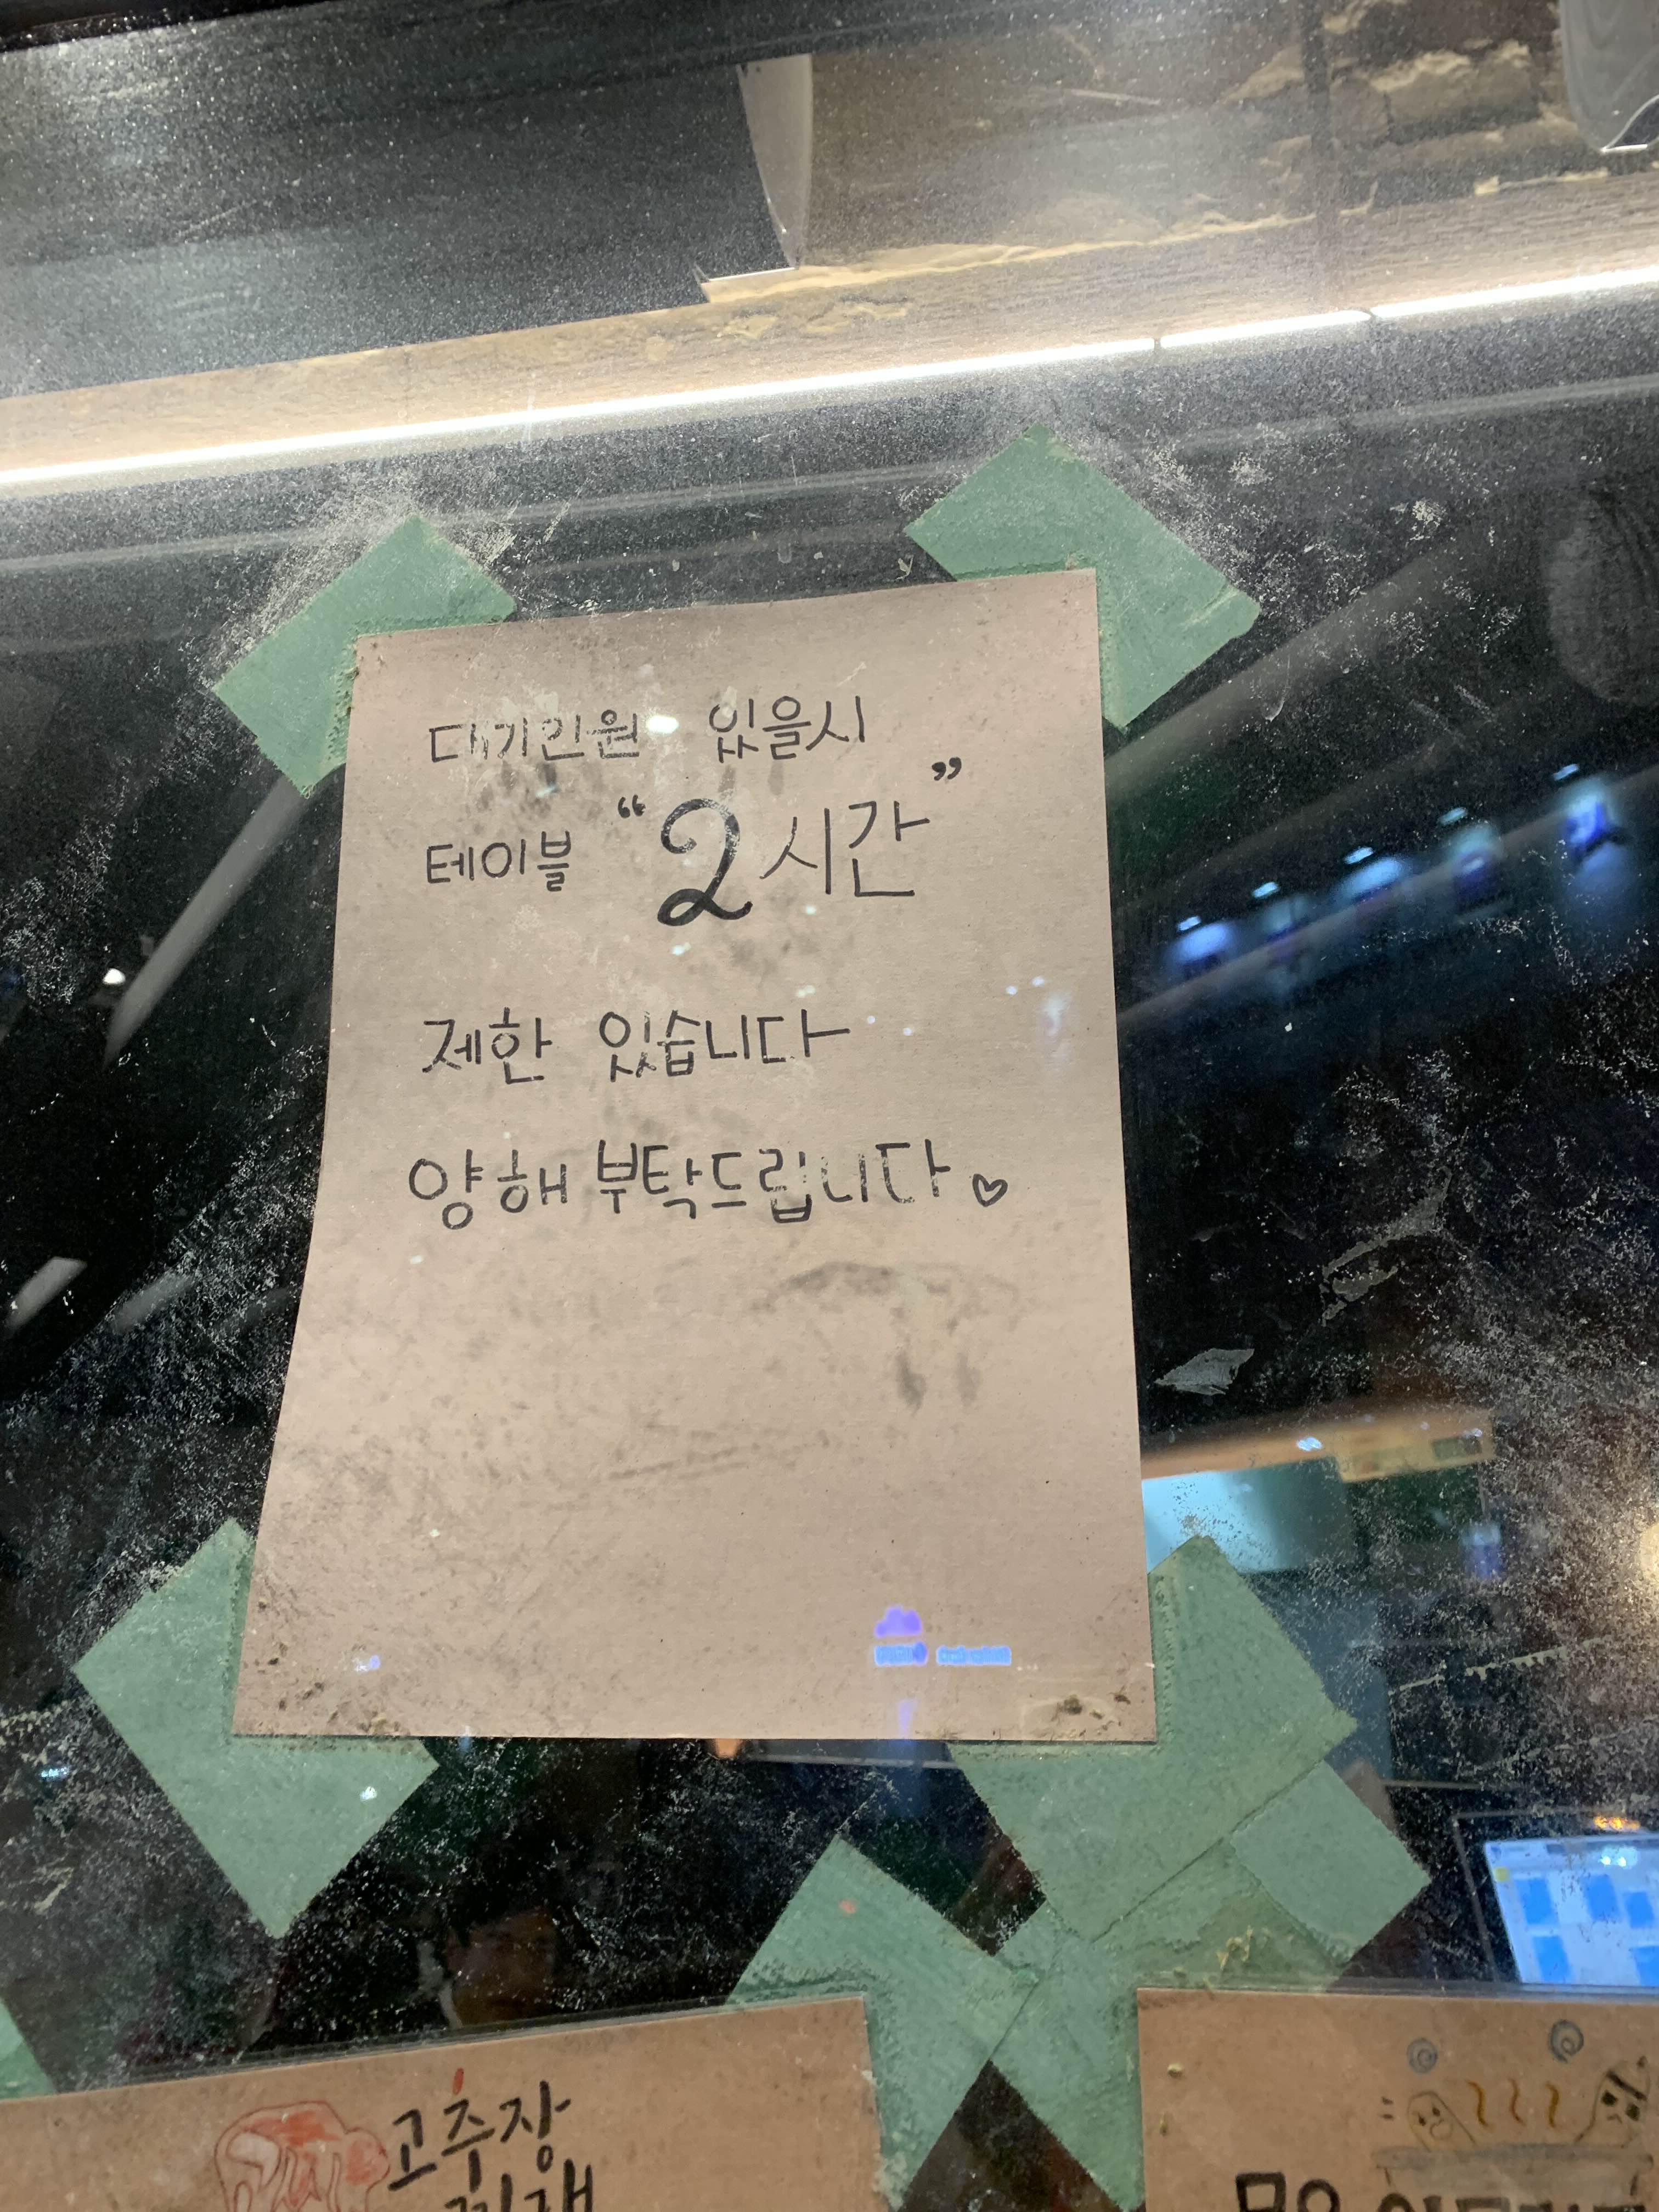 대기인원 있을시
테이블 “2시간”
제한 있습니다
양해 부탁드립니다♡
고추장